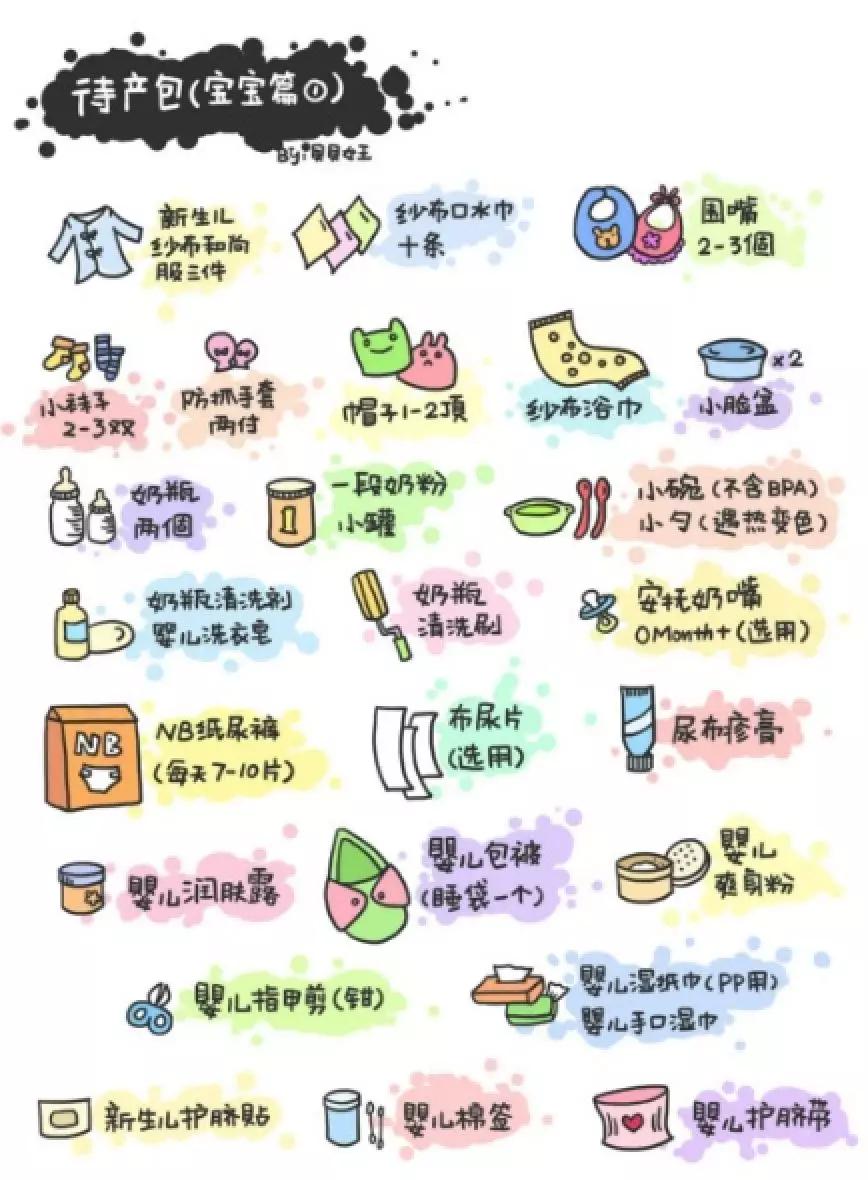 待产包(宝宝篇①)
By:贝贝女王
新生儿
纱布和尚
服三件
纱布口水巾
十条
围嘴
2-3個
小袜子
2-3双
防抓手套
两付
帽子1-2頂
纱布浴巾
x2
小脸盆
奶瓶
两個
一段奶粉
小罐
1
小碗(不含BPA)
小勺(遇热变色)
奶瓶清洗剂
婴儿洗衣皂
奶瓶
清洗刷
安抚奶嘴
0Month+(选用)
NB
NB纸尿裤
(每天7-10片)
布尿片
(选用)
尿布疹膏
婴儿润肤露
婴儿包被
(睡袋一个)
婴儿
爽身粉
婴儿指甲剪(钳)
婴儿湿纸巾(PP用)
婴儿手口湿巾
新生儿护脐贴
婴儿棉签
婴儿护脐带